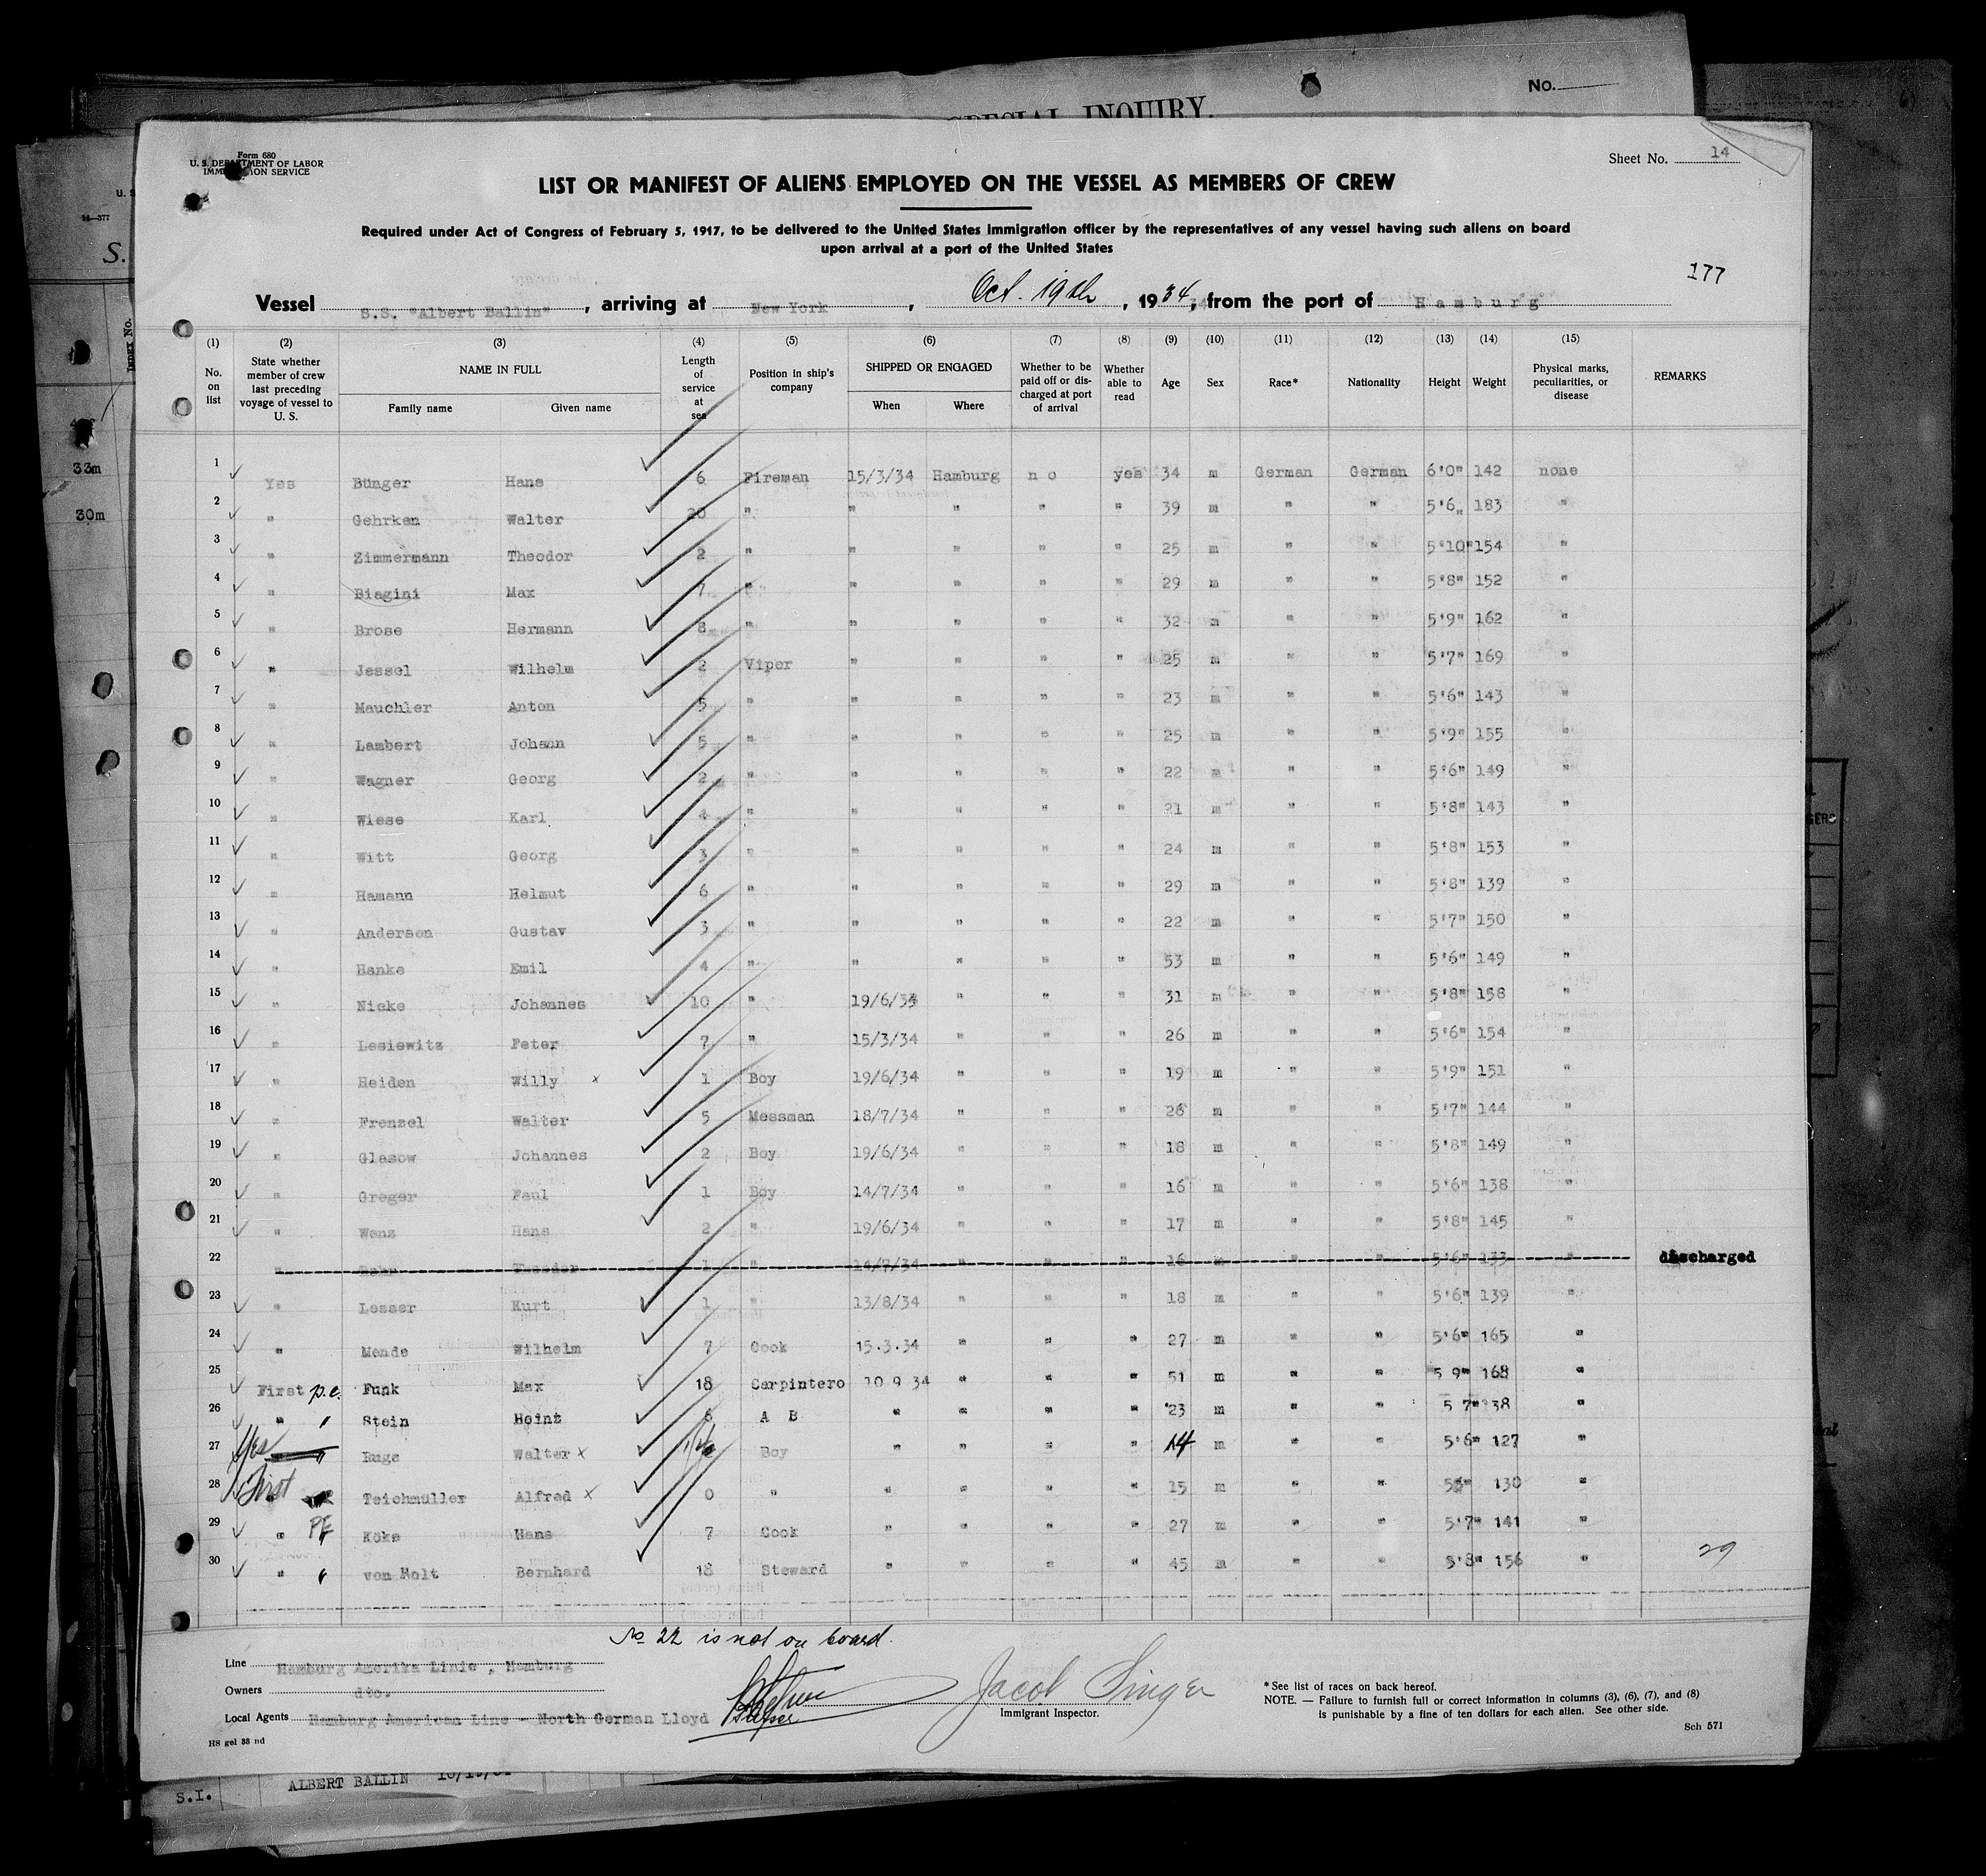 SPECIAL INQUIRY.
No.
Form 680
U. S. DEPARTMENT OF LABOR
IMMIGRATION SERVICE
Sheet No. 14
LIST OR MANIFEST OF ALIENS EMPLOYED ON THE VESSEL AS MEMBERS OF CREW
Required under Act of Congress of February 5, 1917, to be delivered to the United States Immigration officer by the representatives of any vessel having such aliens on board
upon arrival at a port of the United States
177
Vessel S.S. "Albert Ballin", arriving at New York, Oct. 19th, 1934, from the port of Hamburg
(1) (2) (3) (4) (5) (6) (7) (8) (9) (10) (11) (12) (13) (14) (15)
No. on list State whether member of crew last preceding voyage of vessel to U. S. NAME IN FULL Family name Given name Length of service at sea Position in ship's company SHIPPED OR ENGAGED When Where Whether to be paid off or discharged at port of arrival Whether able to read Age Sex Race* Nationality Height Weight Physical marks, peculiarities, or disease REMARKS
1 Yes Bünger Hans 6 Fireman 15/3/34 Hamburg no yes 34 m German German 6'0" 142 none
2 " Gehrken Walter 20 " " " " " 39 m " " 5'6" 183 "
3 " Zimmermann Theodor 2 " " " " " 25 m " " 5'10" 154 "
4 " Biagini Max 7 " " " " " 29 m " " 5'8" 152 "
5 " Brose Hermann 8 " " " " " 32 m " " 5'9" 162 "
6 " Jessel Wilhelm 2 Viper " " " " 25 m " " 5'7" 169 "
7 " Mauchler Anton 5 " " " " " 23 m " " 5'6" 143 "
8 " Lambert Johann 5 " " " " " 25 m " " 5'9" 155 "
9 " Wagner Georg 2 " " " " " 22 m " " 5'6" 149 "
10 " Wiese Karl 4 " " " " " 21 m " " 5'8" 143 "
11 " Witt Georg 3 " " " " " 24 m " " 5'8" 153 "
12 " Hamann Helmut 6 " " " " " 29 m " " 5'8" 139 "
13 " Anderson Gustav 3 " " " " " 22 m " " 5'7" 150 "
14 " Hanke Emil 4 " " " " " 53 m " " 5'6" 149 "
15 " Nicke Johannes 10 " 19/6/34 " " " 31 m " " 5'8" 158 "
16 " Lesiewitz Peter 7 " 15/3/34 " " " 26 m " " 5'6" 154 "
17 " Heiden Willy x 1 Boy 19/6/34 " " " 19 m " " 5'9" 151 "
18 " Frenzel Walter 5 Messman 18/7/34 " " " 26 m " " 5'7" 144 "
19 " Glasow Johannes 2 Boy 19/6/34 " " " 18 m " " 5'8" 149 "
20 " Greger Paul 1 Boy 14/7/34 " " " 16 m " " 5'6" 138 "
21 " Wenz Hans 2 " 19/6/34 " " " 17 m " " 5'8" 145 "
22 " Theodor 1 " 14/7/34 " " " 16 m " " 5'6" 133 " discharged
23 " Lesser Kurt 1 " 13/8/34 " " " 18 m " " 5'6" 139 "
24 " Mende Wilhelm 7 Cook 15.3.34 " " " 27 m " " 5'6" 165 "
25 First p.e. Funk Max 18 Carpintero 10 9 34 " " " 51 m " " 5 9" 168 "
26 " " Stein Heinz 6 A B " " " " 23 m " " 5 7" 38 "
27 Yes " Ruge Walter x Boy " " " " 14 m " " 5'6" 127 "
28 First Teichmüller Alfred x 0 " " " " " 15 m " " 130 "
29 " PE Köke Hans 7 Cook " " " " 27 m " " 5'7" 141 "
30 " " von Holt Bernhard 18 Steward " " " " 45 m " " 5'8" 156 "
29
No 22 is not on board.
Line Hamburg Amerika Linie, Hamburg
Owners dto.
Local Agents Hamburg American Line - North German Lloyd
Jacob Singer
Immigrant Inspector.
*See list of races on back hereof.
NOTE. — Failure to furnish full or correct information in columns (3), (6), (7), and (8)
is punishable by a fine of ten dollars for each alien. See other side.
HS gel 33 nd
Sch 571
33m
30m
Index No.
S.I.
ALBERT BALLIN